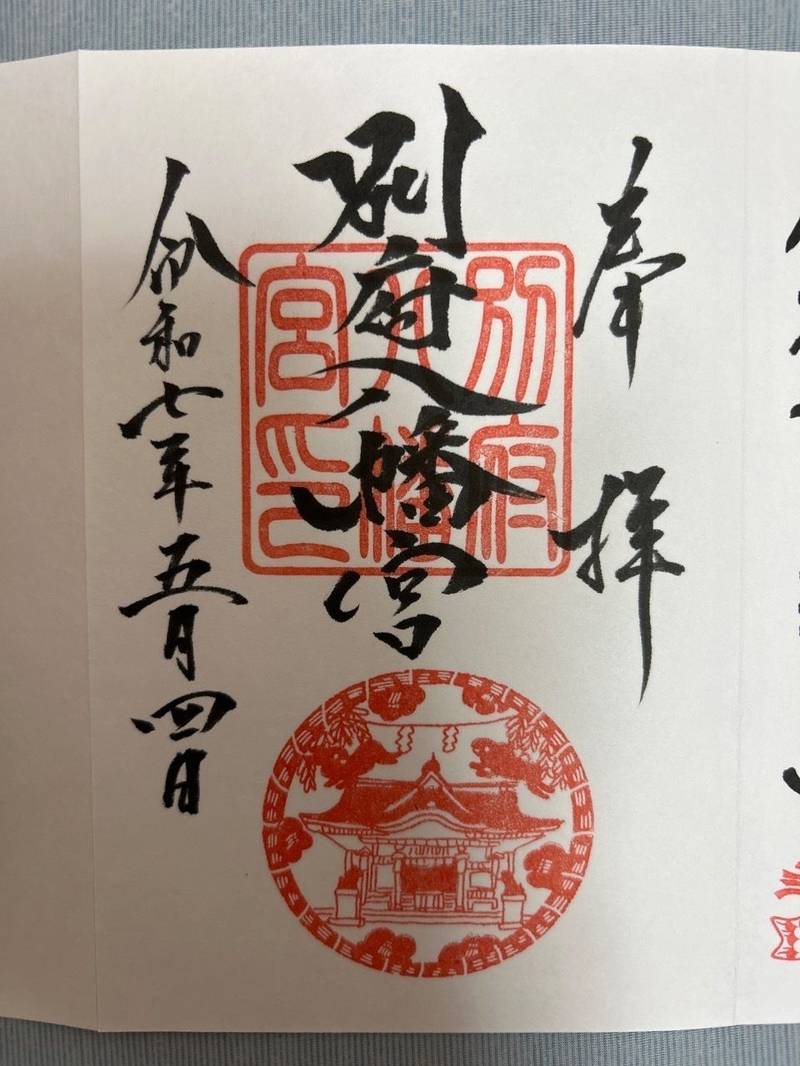 奉拝
別府八幡宮
別府
八幡
宮印
令和七年五月四日